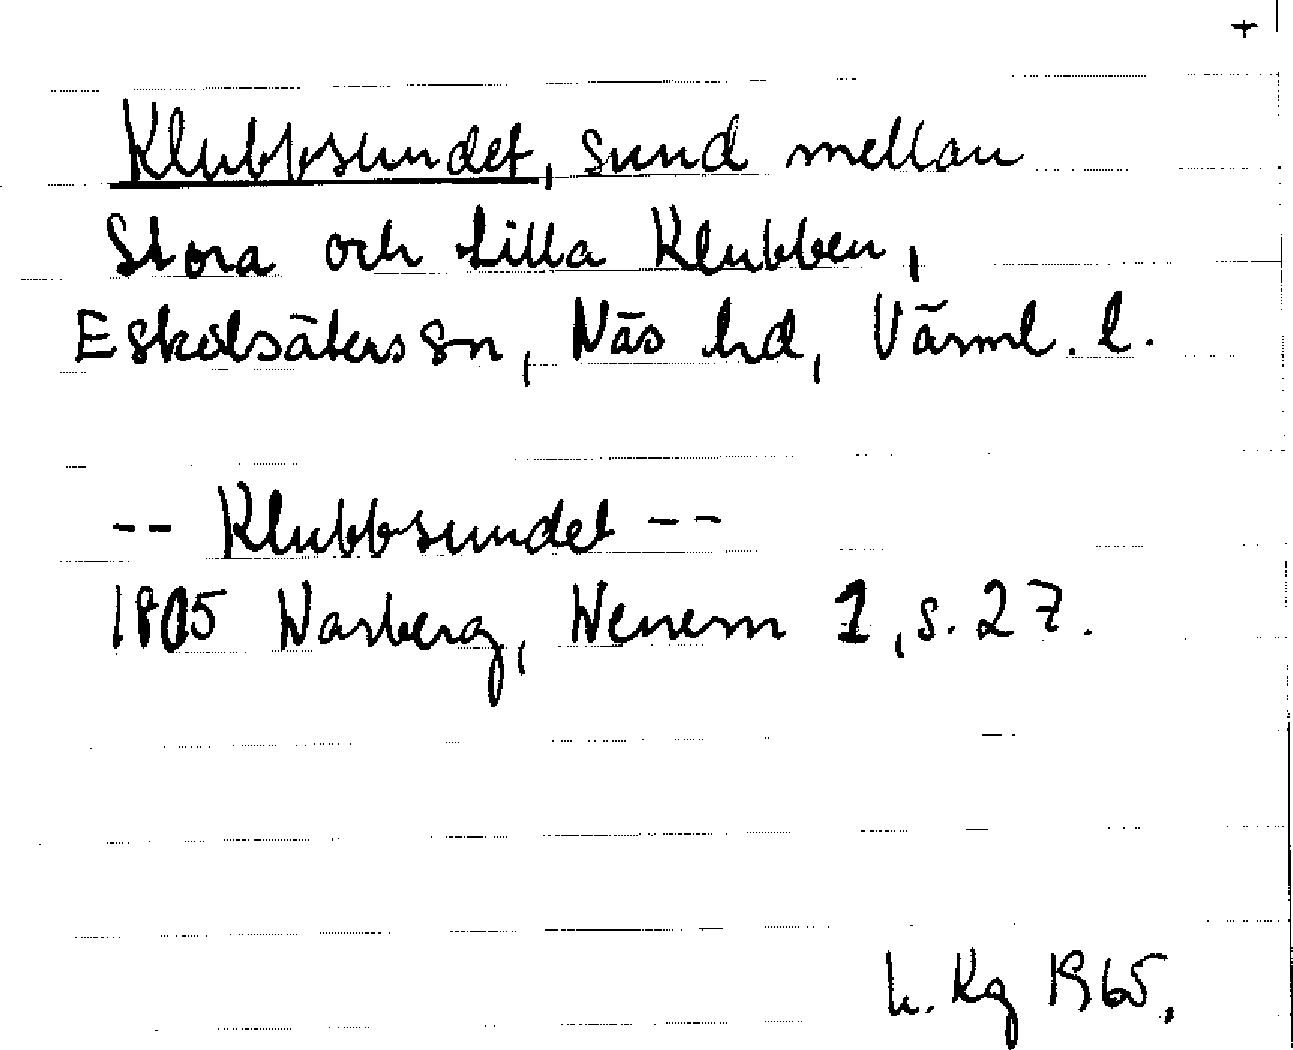 +
Klubbsundet, sund mellan
Stora och Lilla Klubben,
Eskilsäters sn, Näs hd, Värml. l.
-- Klubbsundet --
1805 Warberg, Wenern 1, s. 27.
L. Kg 1965.